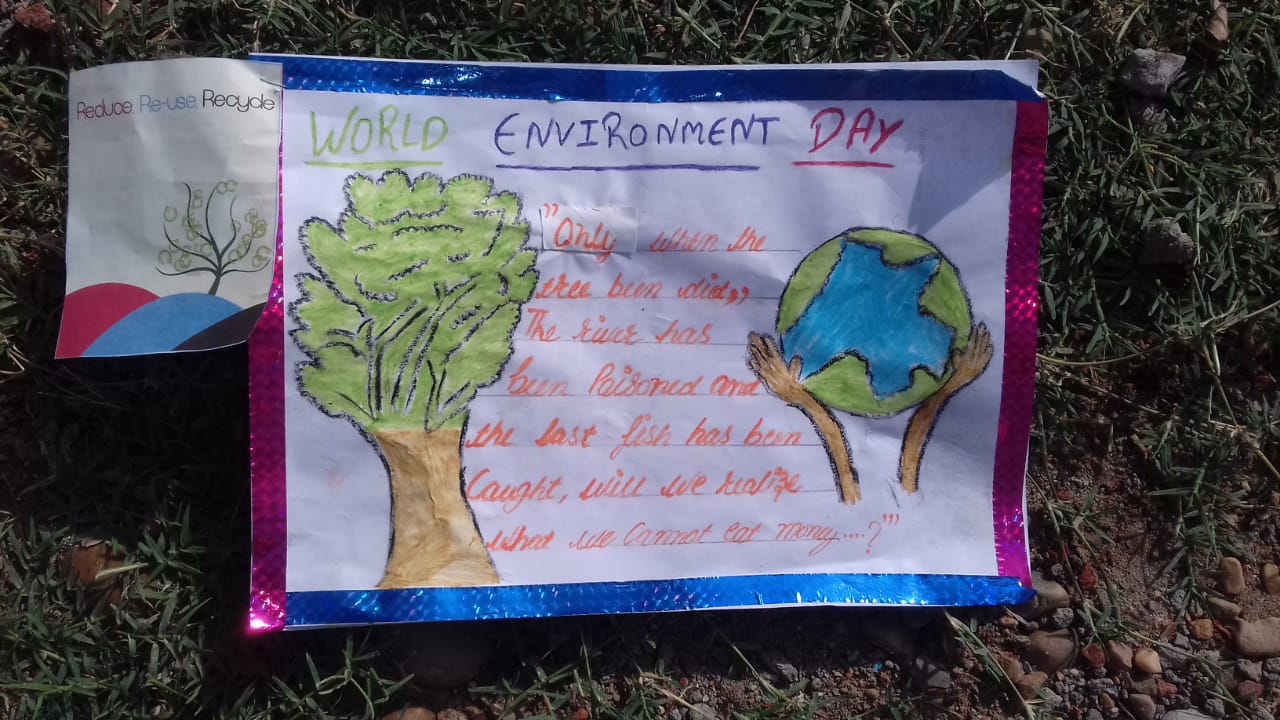 Reduce, Re-use, Recycle
WORLD ENVIRONMENT DAY
"Only when the
tree been died,,
The river has
been Poisoned and
the last fish has been
Caught, will we realize
What we Cannot eat money....?"'